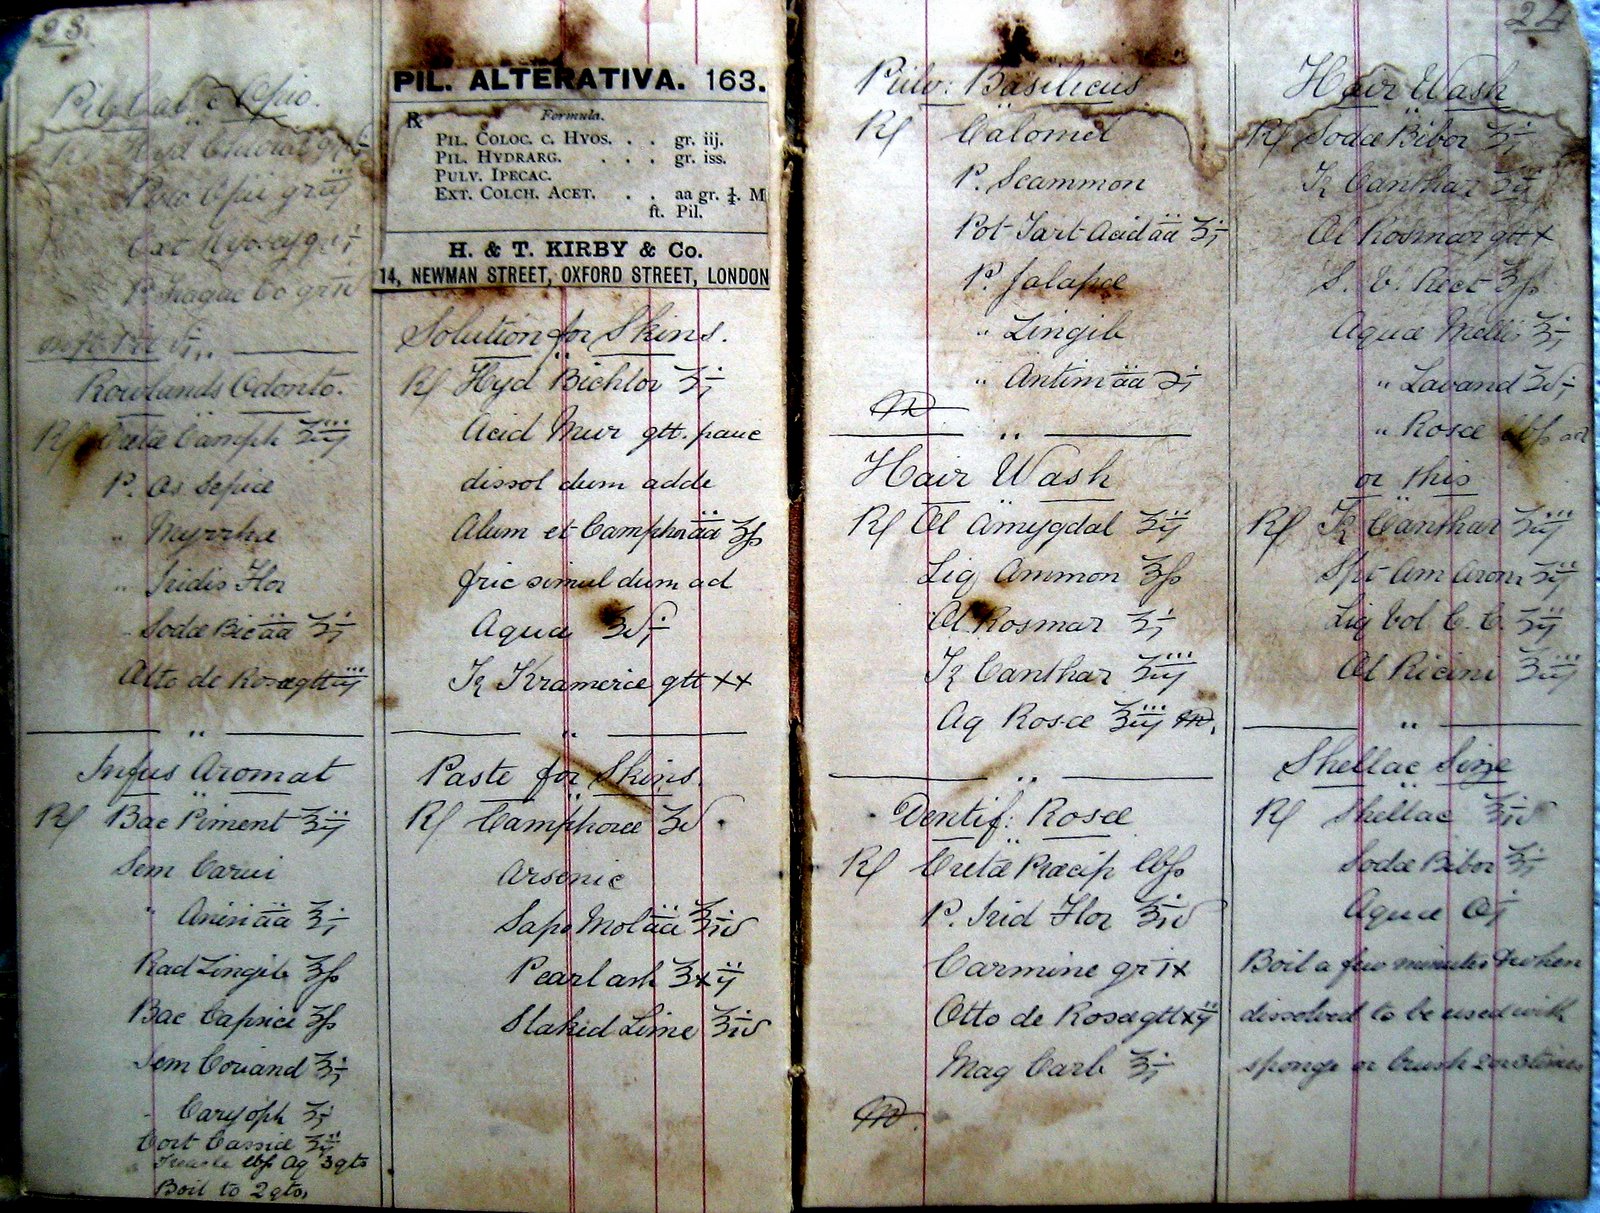 23.
Pil Cal c Opio.
Pulv Opii gr
Ext Hyoscy gr
P. Tragac Co gr
Rowlands Odonto.
Rx Cretæ Camph ʒiij
P. Os Sepiæ
" Myrrhæ
" Iridis Flor
Sodæ Bic āā ʒj
Otto de Rosæ gtt iij
Infus Aromat
Rx Bac Piment ʒij
Sem Carui
" Anisi āā ʒj
Rad Zingib ʒſs
Bac Capsici ʒſs
Sem Coriand ʒj
" Caryoph ʒj
Cort Cassiæ ʒij
Treacle lbſs Aq 3 qts
Boil to 2 qts
PIL. ALTERATIVA. 163.
℞ Formula.
PIL. COLOC. C. HYOS. . . gr. iij.
PIL. HYDRARG. . . . gr. iss.
PULV. IPECAC.
EXT. COLCH. ACET. . . aa gr. ¼. M
ft. Pil.
H. & T. KIRBY & Co.
14, NEWMAN STREET, OXFORD STREET, LONDON
Solution for Skins.
Rx Hyd Bichlor ʒj
Acid Mur gtt. pauc
dissol dum adde
Alum et Camphor āā ʒſs
fric simul dum ad
Aquæ ʒvj
Tr Krameriæ gtt xx
Paste for Skins.
Rx Camphoræ ʒv
Arsenic
Sapo Mol āā ʒiv
Pearl ash ʒxij
Slakid Lime ʒiv
24
Pulv: Basilicus
Rx Calomel
P. Scammon
Pot Tart Acid āā ʒj
P. Jalapæ
" Zingib
" Antim āā ℈j
M
Hair Wash
Rx Ol Amygdal ʒij
Liq Ammon ʒſs
Ol Rosmar ʒj
Tr Canthar ʒiij
Aq Rosæ ʒiij M.
Dentif: Rosæ
Rx Cretæ Præcip lbſs
P. Irid Flor ʒiv
Carmine gr ix
Otto de Rosæ gtt xij
Mag Carb ʒj
M.
Hair Wash
Rx Sodæ Bibor ʒj
Tr Canthar ʒij
Ol Rosmar gtt x
S. V. Rect ʒſs
Aquæ Mellis ʒj
" Lavand ʒvj
" Rosæ lbſs ad
or this
Rx Tr Canthar ʒiij
Spt Am Arom ʒij
Liq Vol C. C. ʒij
Ol Ricini ʒiij
Shellac Size
Rx Shellac ʒiv
Sodæ Bibor ʒj
Aquæ Oj
Boil a few minutes & when
dissolved to be used with
sponge or brush 2 or 3 times